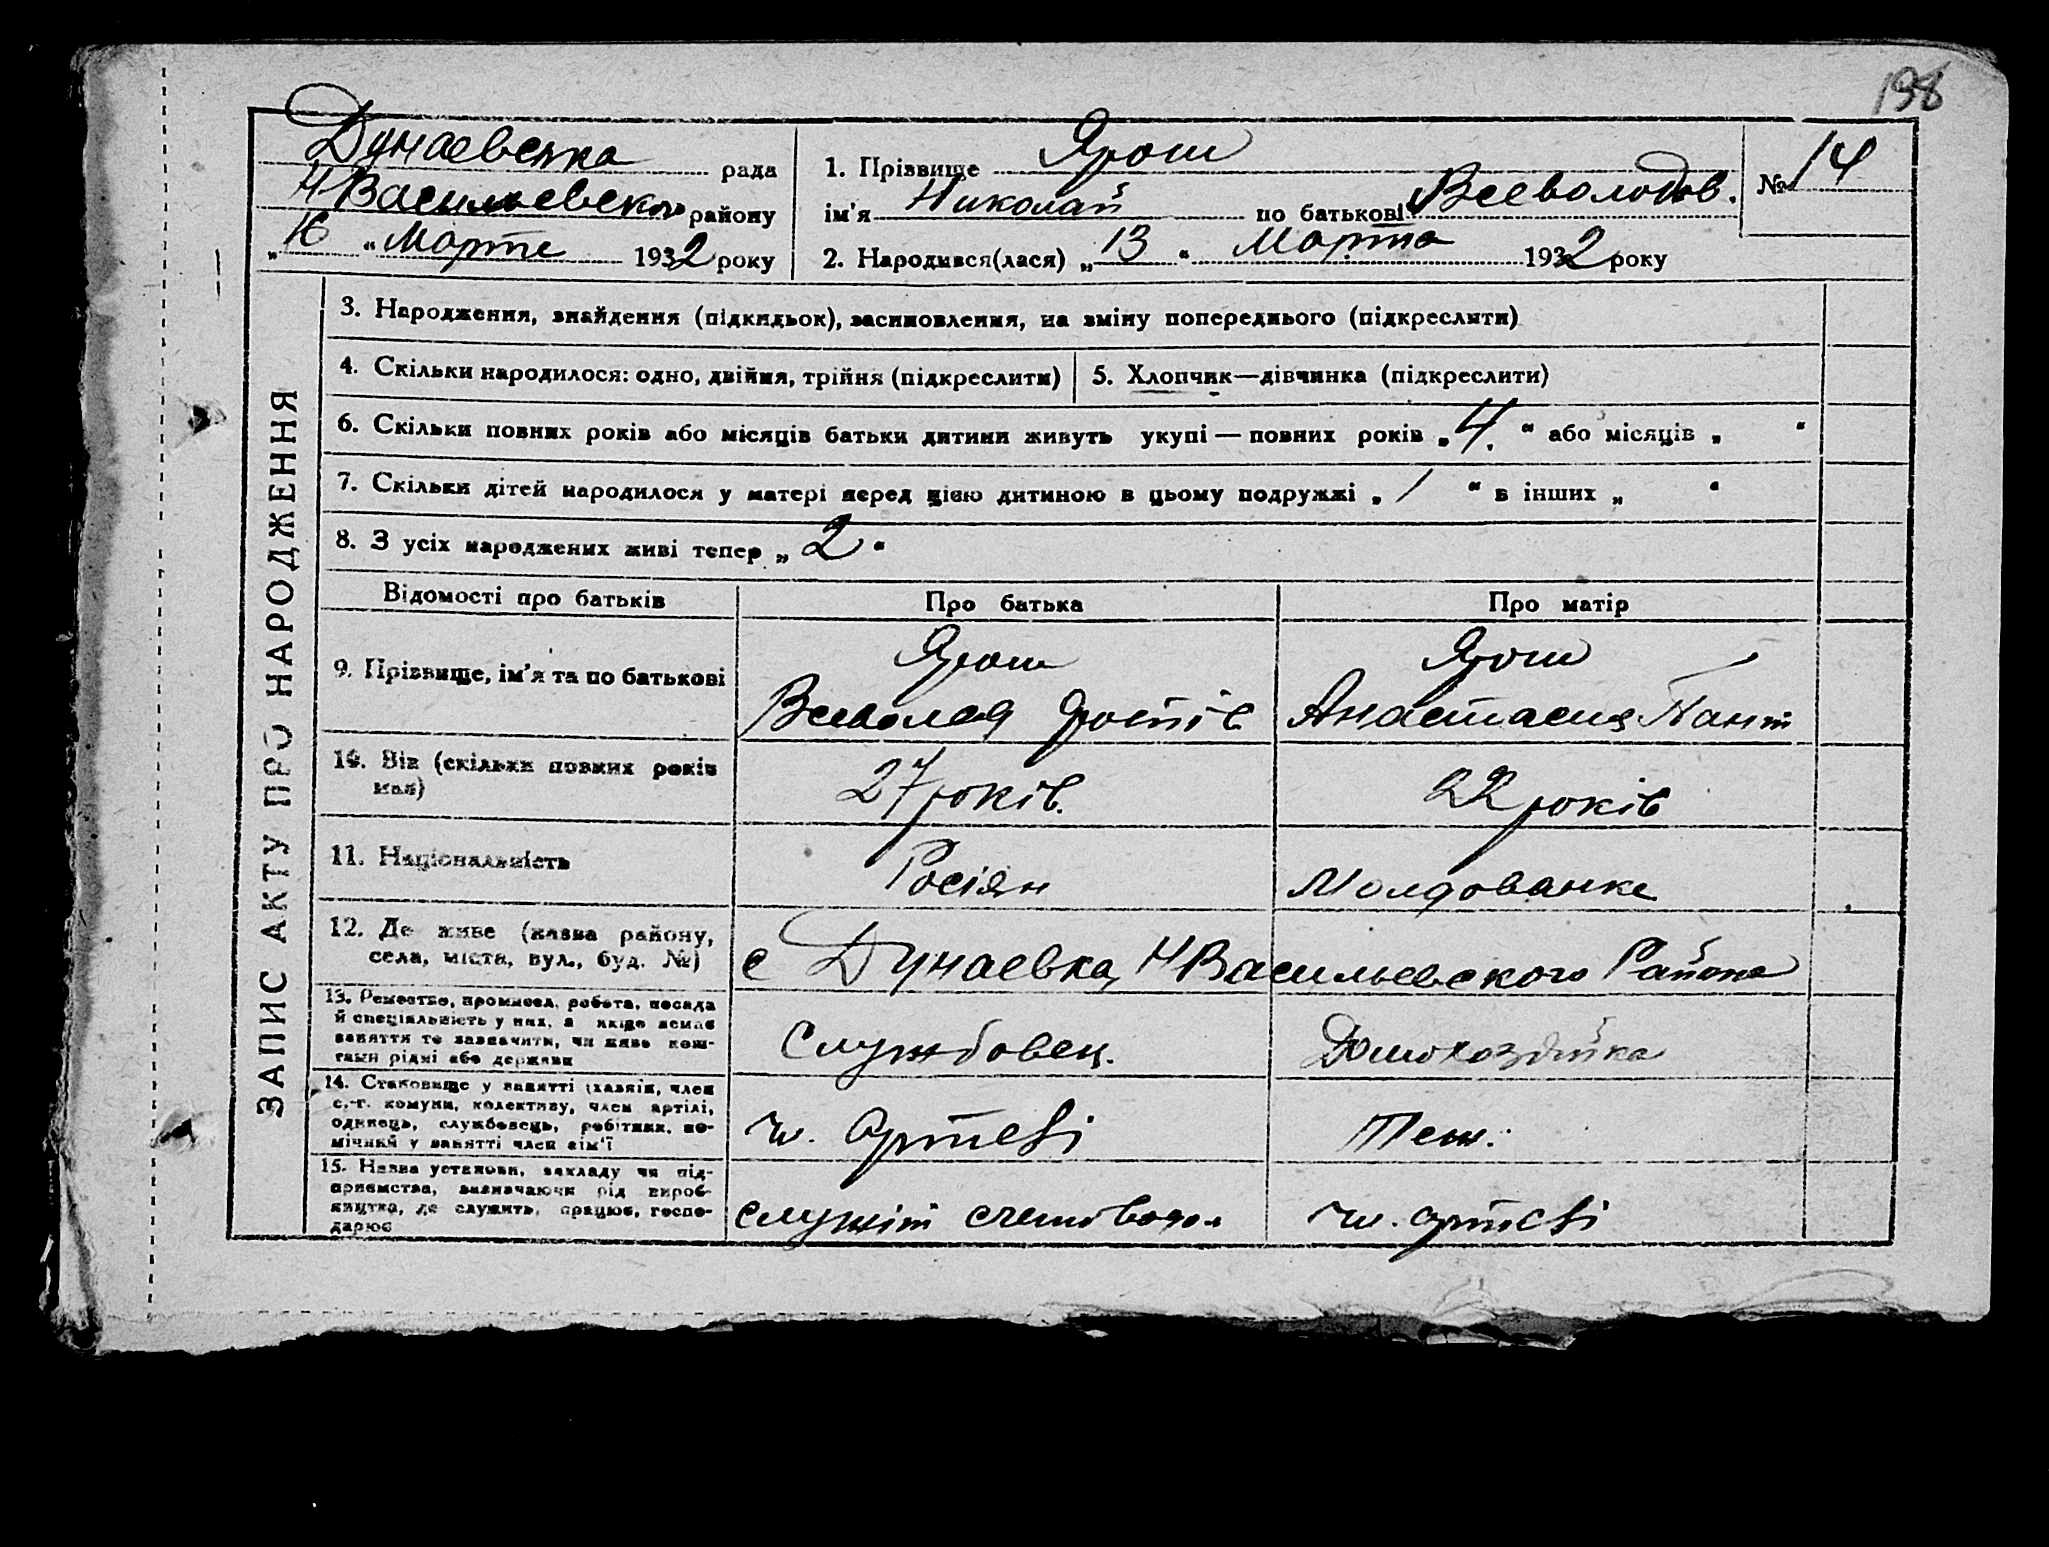 198
Дунаевська рада
Н Васильевского району
„16“ Марта 1932 року
1. Прізвище Ярош
ім'я Николай по батькові Всеволодов.
№ 14
2. Народився(лася) „13“ Марта 1932 року
ЗАПИС АКТУ ПРО НАРОДЖЕННЯ
3. Народження, знайдення (підкидьок), засиновлення, на зміну попереднього (підкреслити)
4. Скільки народилося: одно, двійня, трійня (підкреслити)
5. Хлопчик—дівчинка (підкреслити)
6. Скільки повних років або місяців батьки дитини живуть укупі — повних років „4.“ або місяців „ “
7. Скільки дітей народилося у матері перед цією дитиною в цьому подружжі „1“ в інших „ “
8. З усіх народжених живі тепер „2“
Відомості про батьків Про батька Про матір
9. Прізвище, ім'я та по батькові
Ярош
Ярош
Анастасия Пант
10. Вік (скільки повних років
мав)
27 років.
22 років
11. Національність
Росіян
Молдованка
12. Де живе (назва району,
села, міста, вул., буд. №)
с Дунаевка, Н Васильевского Района
13. Ремество, промисел, робота, посада
й спеціяльність у них, а якщо немає
заняття то зазначити, чи живе кош-
тами рідні або держави
Службовец.
Домохозяйка
14. Становище у занятті (хазяїн, член
с.-г. комуни, колективу, член артілі,
одинець, службовець, робітник, по-
мічний у занятті член сім'ї
ч. артели
Теж.
15. Назва установи, закладу чи під-
приємства, визначаючи рід вироб-
ництва, де служить, працює, госпо-
дарює
служит счетоводом
чл. артели